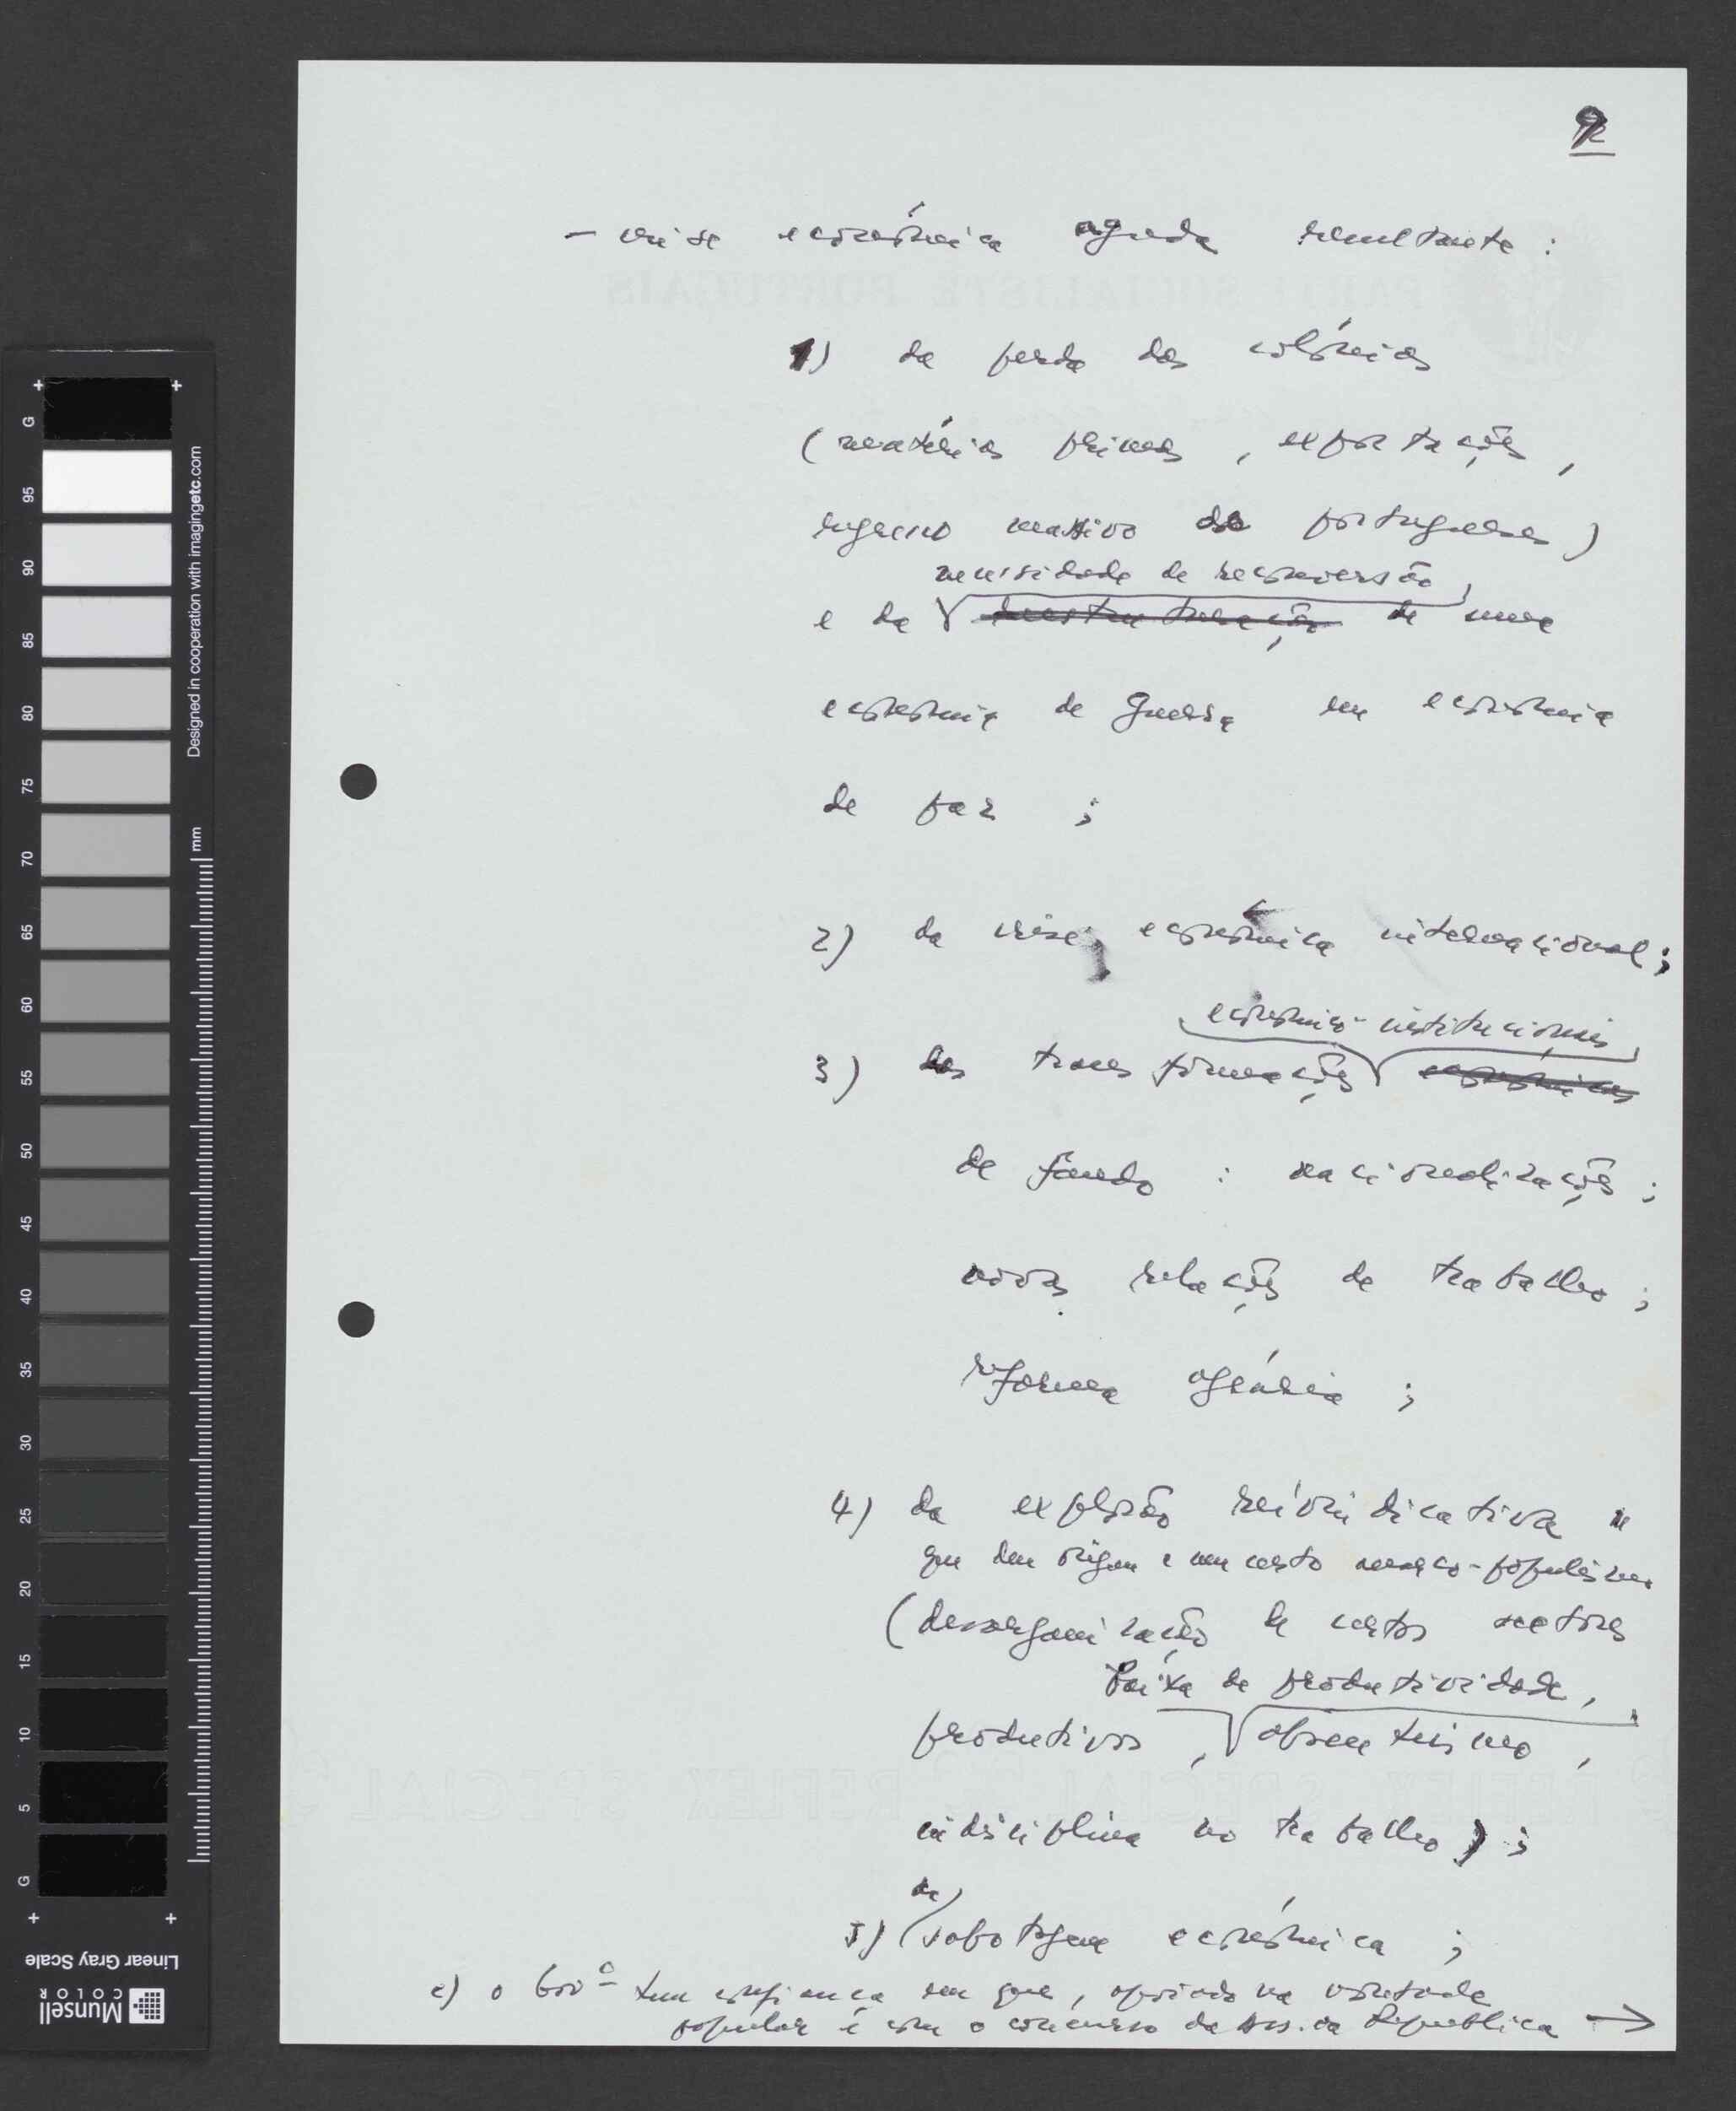 9
- crise económica aguda resultante :
1) da perda das colónias
(matérias primas, exportações,
regresso massivo de portugueses)
necessidade de reconversão
e da desestruturação de uma
economia de guerra em economia
de paz ;
2) da crise económica internacional ;
económico-institucionais
3) das transformações económicas
de fundo : nacionalizações ;
novas relações de trabalho ;
reforma agrária ;
4) da explosão reivindicativa
que deu origem a um certo anarco-populismo
(desorganização de certos sectores
baixa de produtividade,
produtivos, absentismo,
indisciplina no trabalho) ;
da
5) sabotagem económica ;
e) o Govº tem confiança em que, apoiado na vontade
popular e com o concurso da Ass. da República →
PARTI SOCIALISTE PORTUGAIS
REFLEX SPECIAL REFLEX SPECIAL
G
95
90
85
80
75
70
65
60
55
50
45
40
35
30
25
20
15
10
5
G
mm
Designed in cooperation with imagingetc.com
Linear Gray Scale
Munsell
COLOR